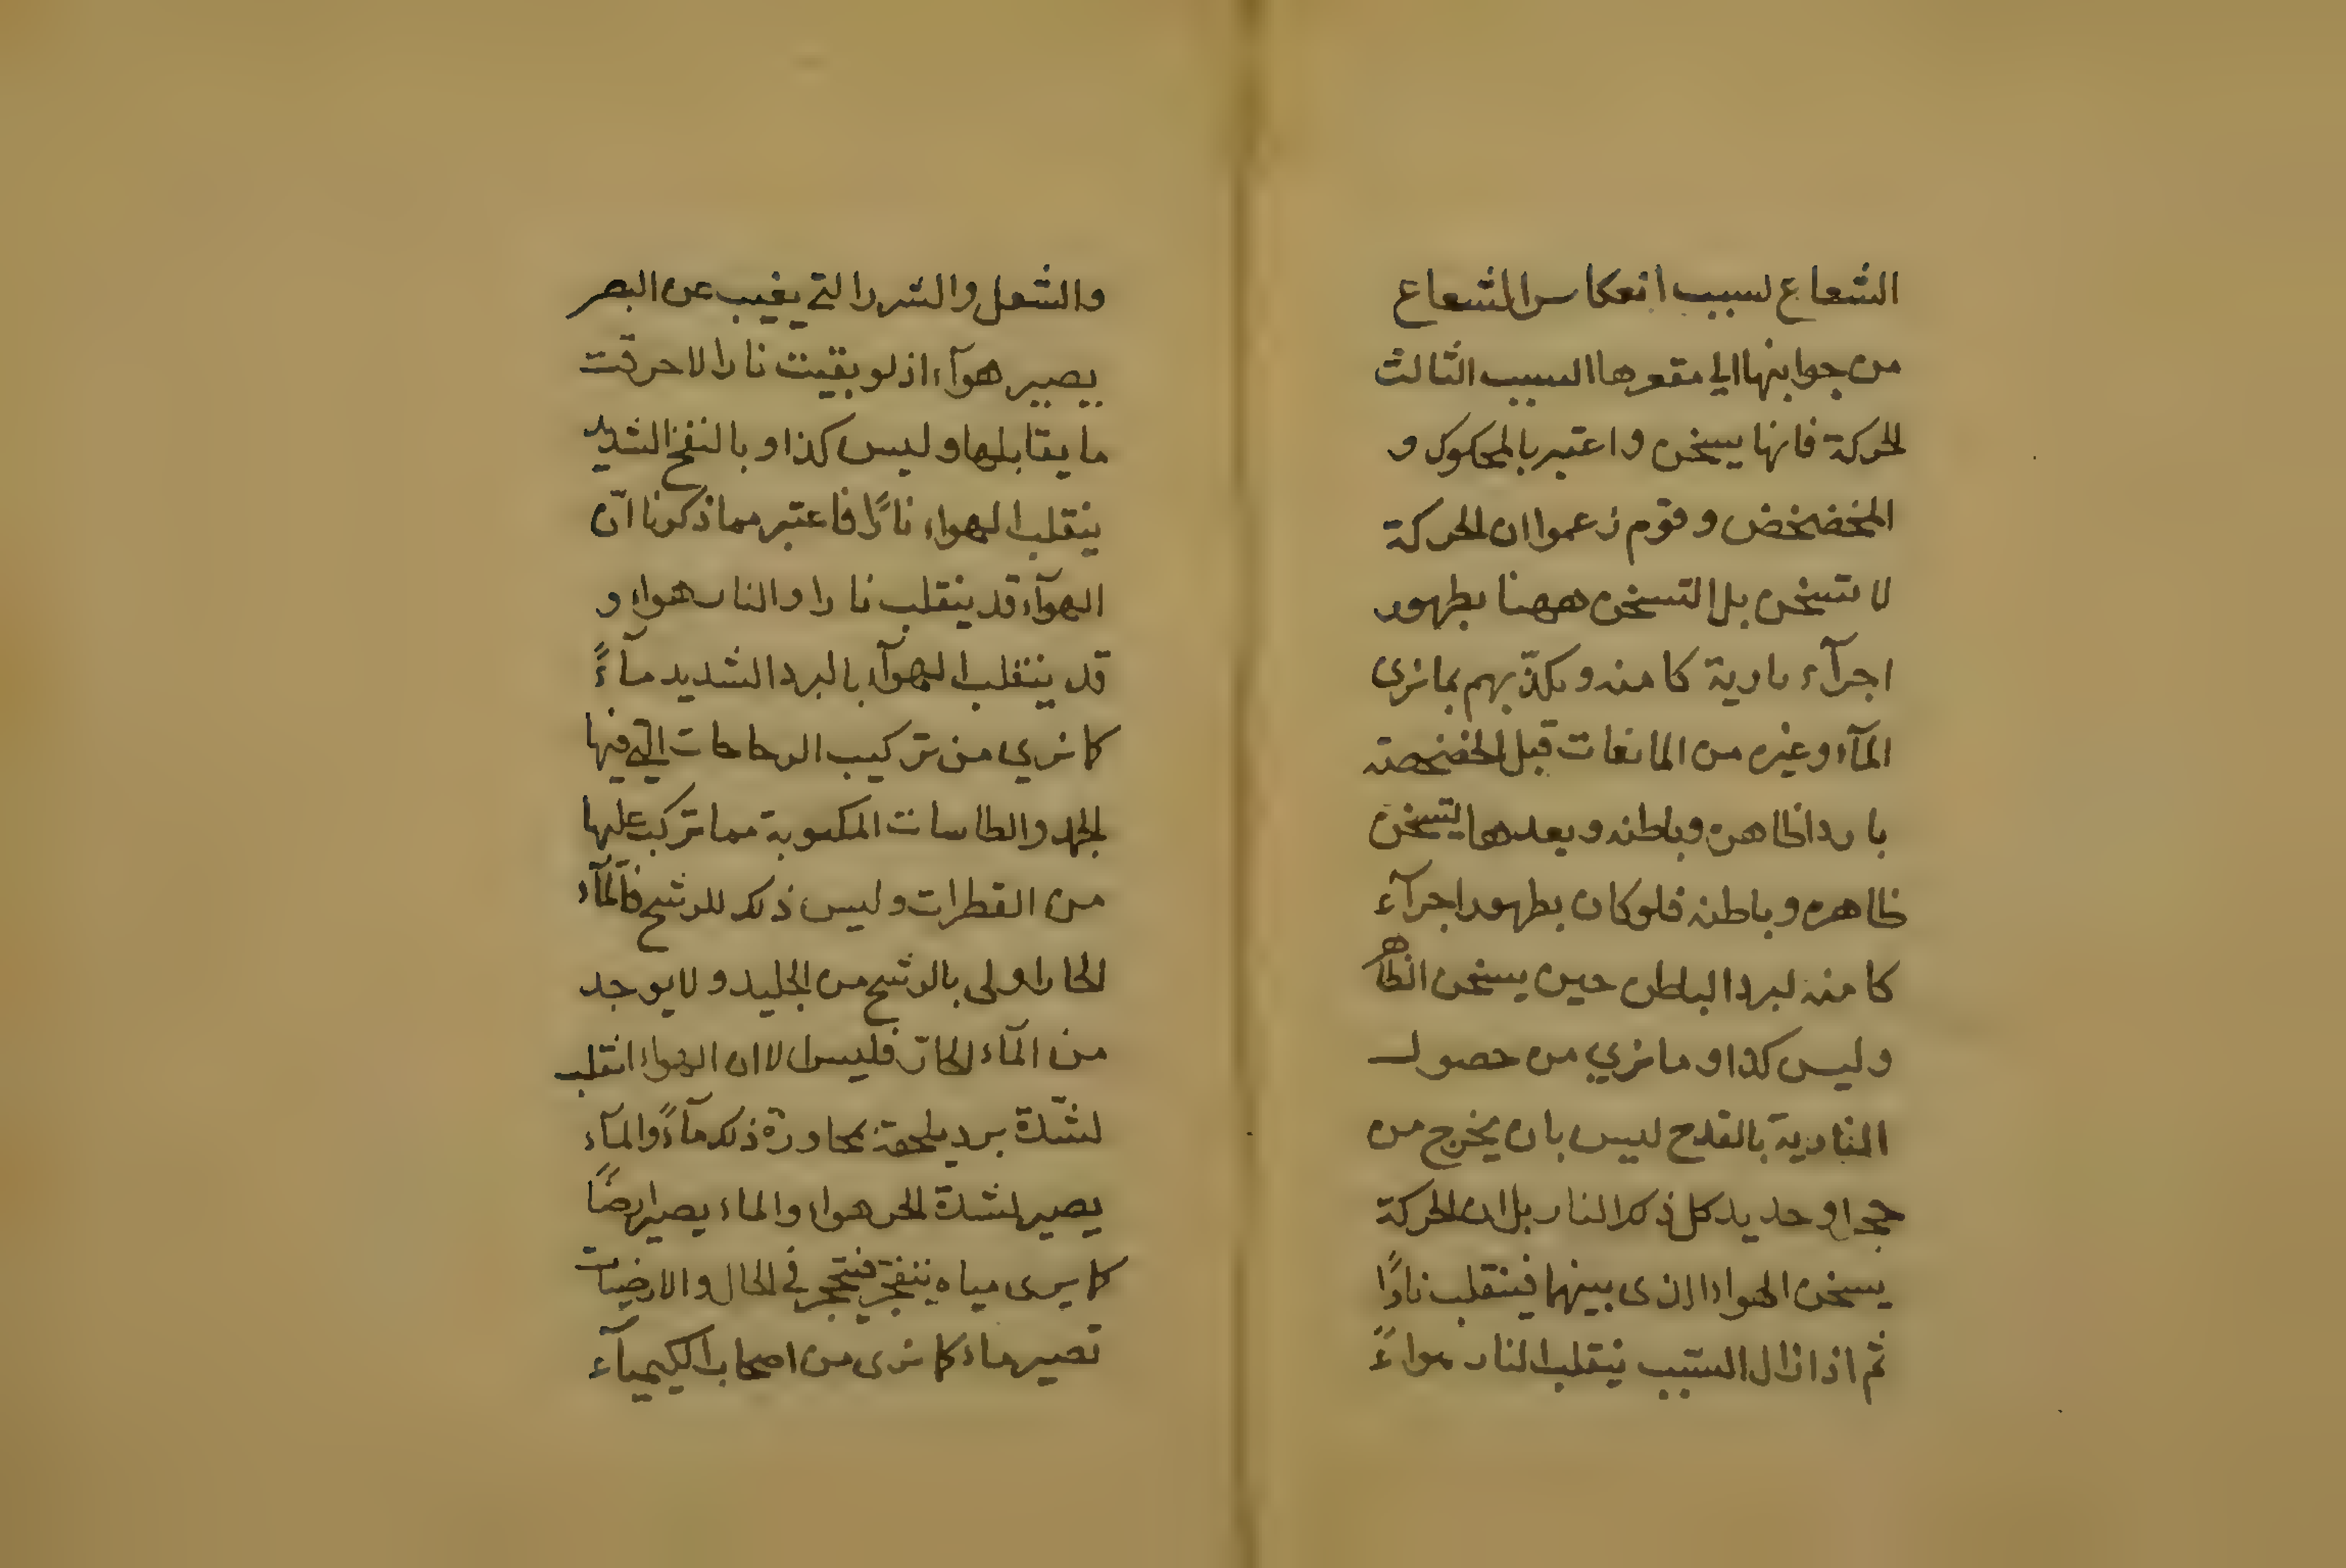 الشعاع لسبب انعكاس الشعاع
من جوانبها الي مقعرها السبب الثالث
الحركة فانها يسخن واعتبر بالمحكوك و
المخضخض وقوم زعموا ان الحركة
لا تسخن بل التسخن ههنا بظهور
اجزآء نارية كامنه ويكذّبهم بما نرى
المآء وغيره من المائعات قبل الخضخضة
باردا ظاهره وباطنه وبعدها يتسخن
ظاهره وباطنه فلو كان بظهور اجزآء
كامنه لبرد الباطن حين يسخن الظاهر
وليس كذا وما نري من حصول
النارية بالقدح ليس بان يخرج من
حجر او حديد كل ذلك النار بل ان الحركة
يسخن الهواء الذى بينهما فينقلب نارًا
ثم اذا زال السبب ينقلب النار هواءً
والشعل والشرر التي يغيب عن البصر
يصير هوآء اذ لو بقيت نارا لاحرقت
ما يقابلها وليس كذا وبالنفخ الشديد
ينقلب الهواء نارًا فاعتبر مما ذكرنا انّ
الهوآء قد ينقلب نارا والنار هواء و
قد ينقلب الهوآء بالبرد الشديد مآءً
كما نري من تركيب الزجاجات التي فيها
الجمد والطاسات المكبوبة مما تركب عليها
من القطرات وليس ذلك للرشح فالمآء
الحار اولى بالرشح من الجليد ولا يوجد
من المآء الحارّ فليس الا ان الهواء انقلب
لشدّة برد يلحقة بمجاورة ذلك مآءً والمآء
يصير لشدة الحر هواء والماء يصير ارضًا
كما يرى مياه يتفجر فتحجر في الحال والارضيات
تصير ماء كما نرى من اصحاب الكيميآء